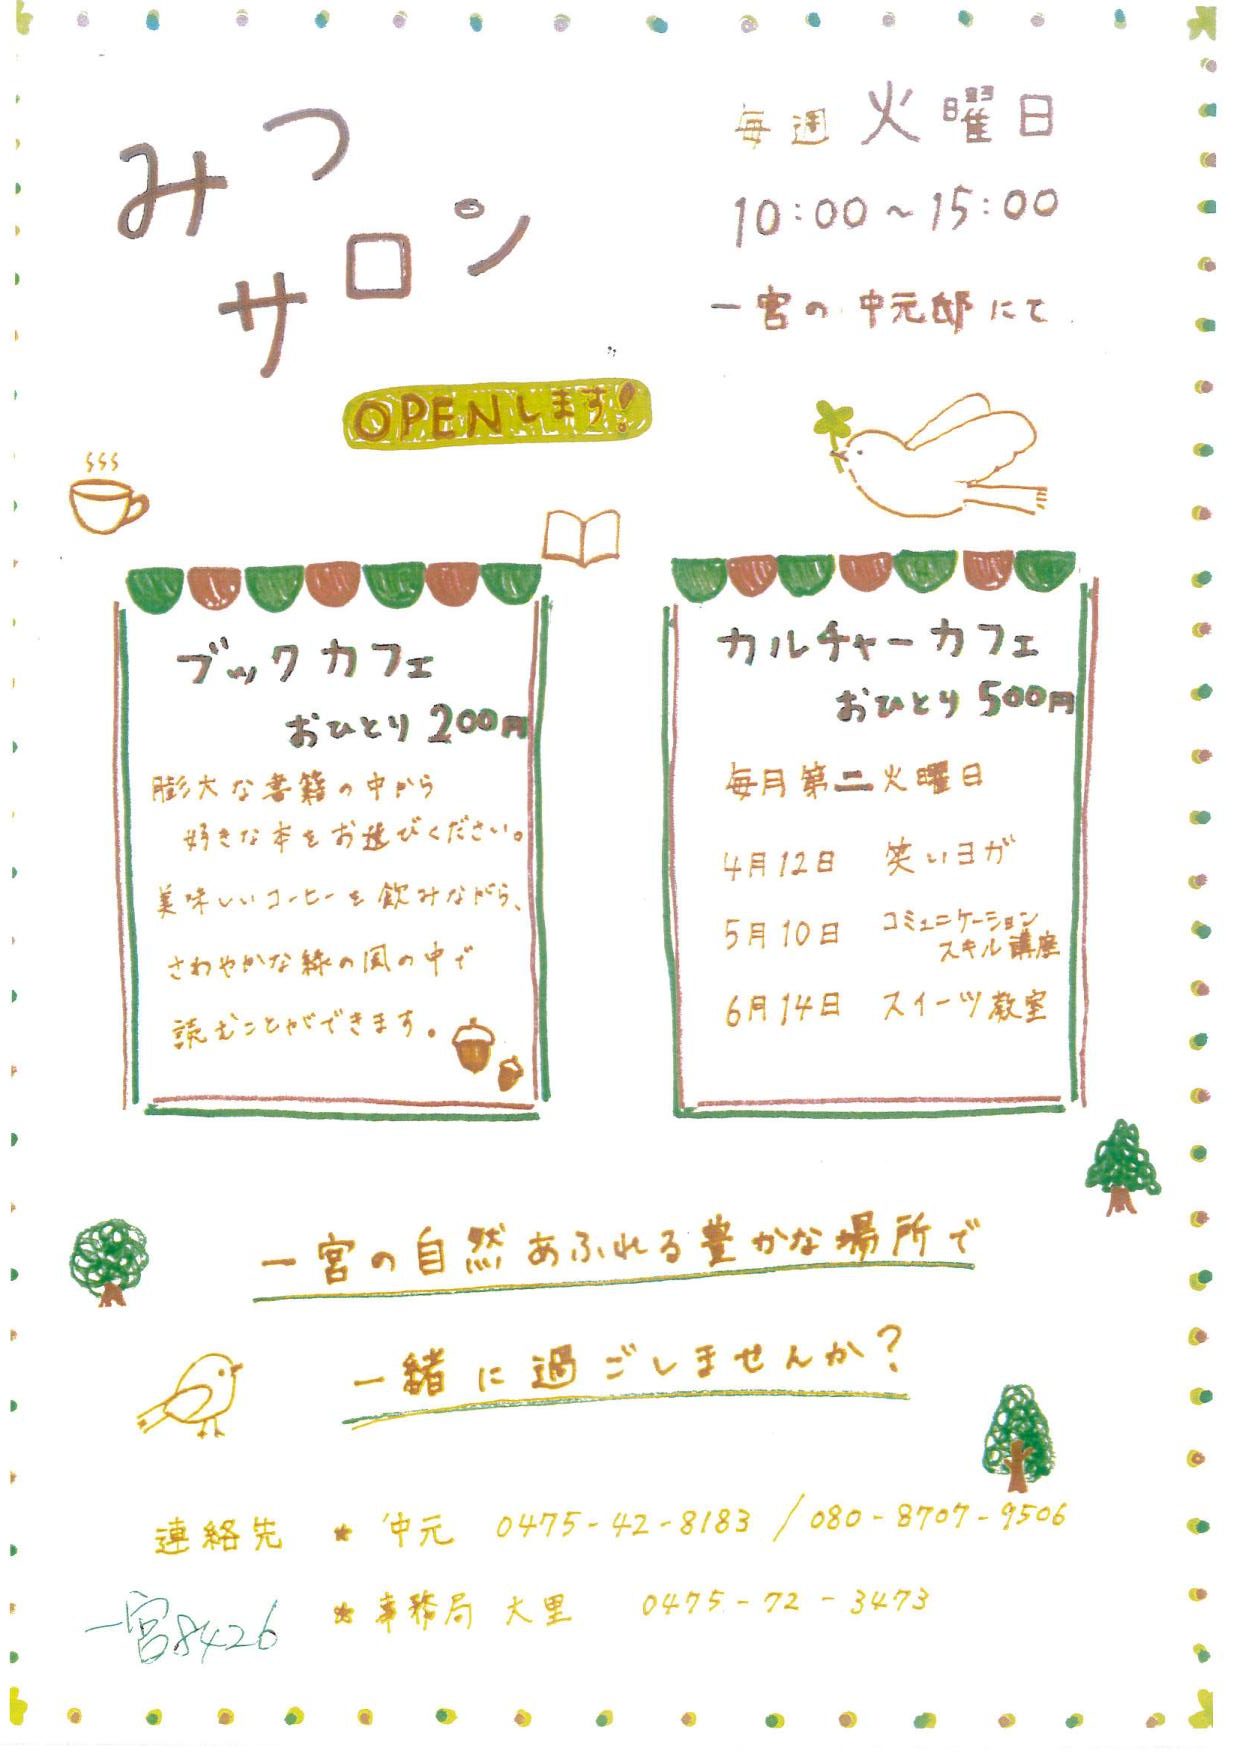 みつ
サロン
毎週火曜日
10:00～15:00
一宮の中元邸にて
OPENします!
ブックカフェ
おひとり200円
膨大な書籍の中から
好きな本をお選びください。
美味しいコーヒーを飲みながら、
さわやかな緑の風の中で
読むことができます。
カルチャーカフェ
おひとり500円
毎月第二火曜日
4月12日 笑いヨガ
5月10日 コミュニケーション
スキル講座
6月14日 スイーツ教室
一宮の自然あふれる豊かな場所で
一緒に過ごしませんか?
連絡先 ★中元 0475-42-8183/080-8707-9506
★事務局 大里 0475-72-3473
一宮8426